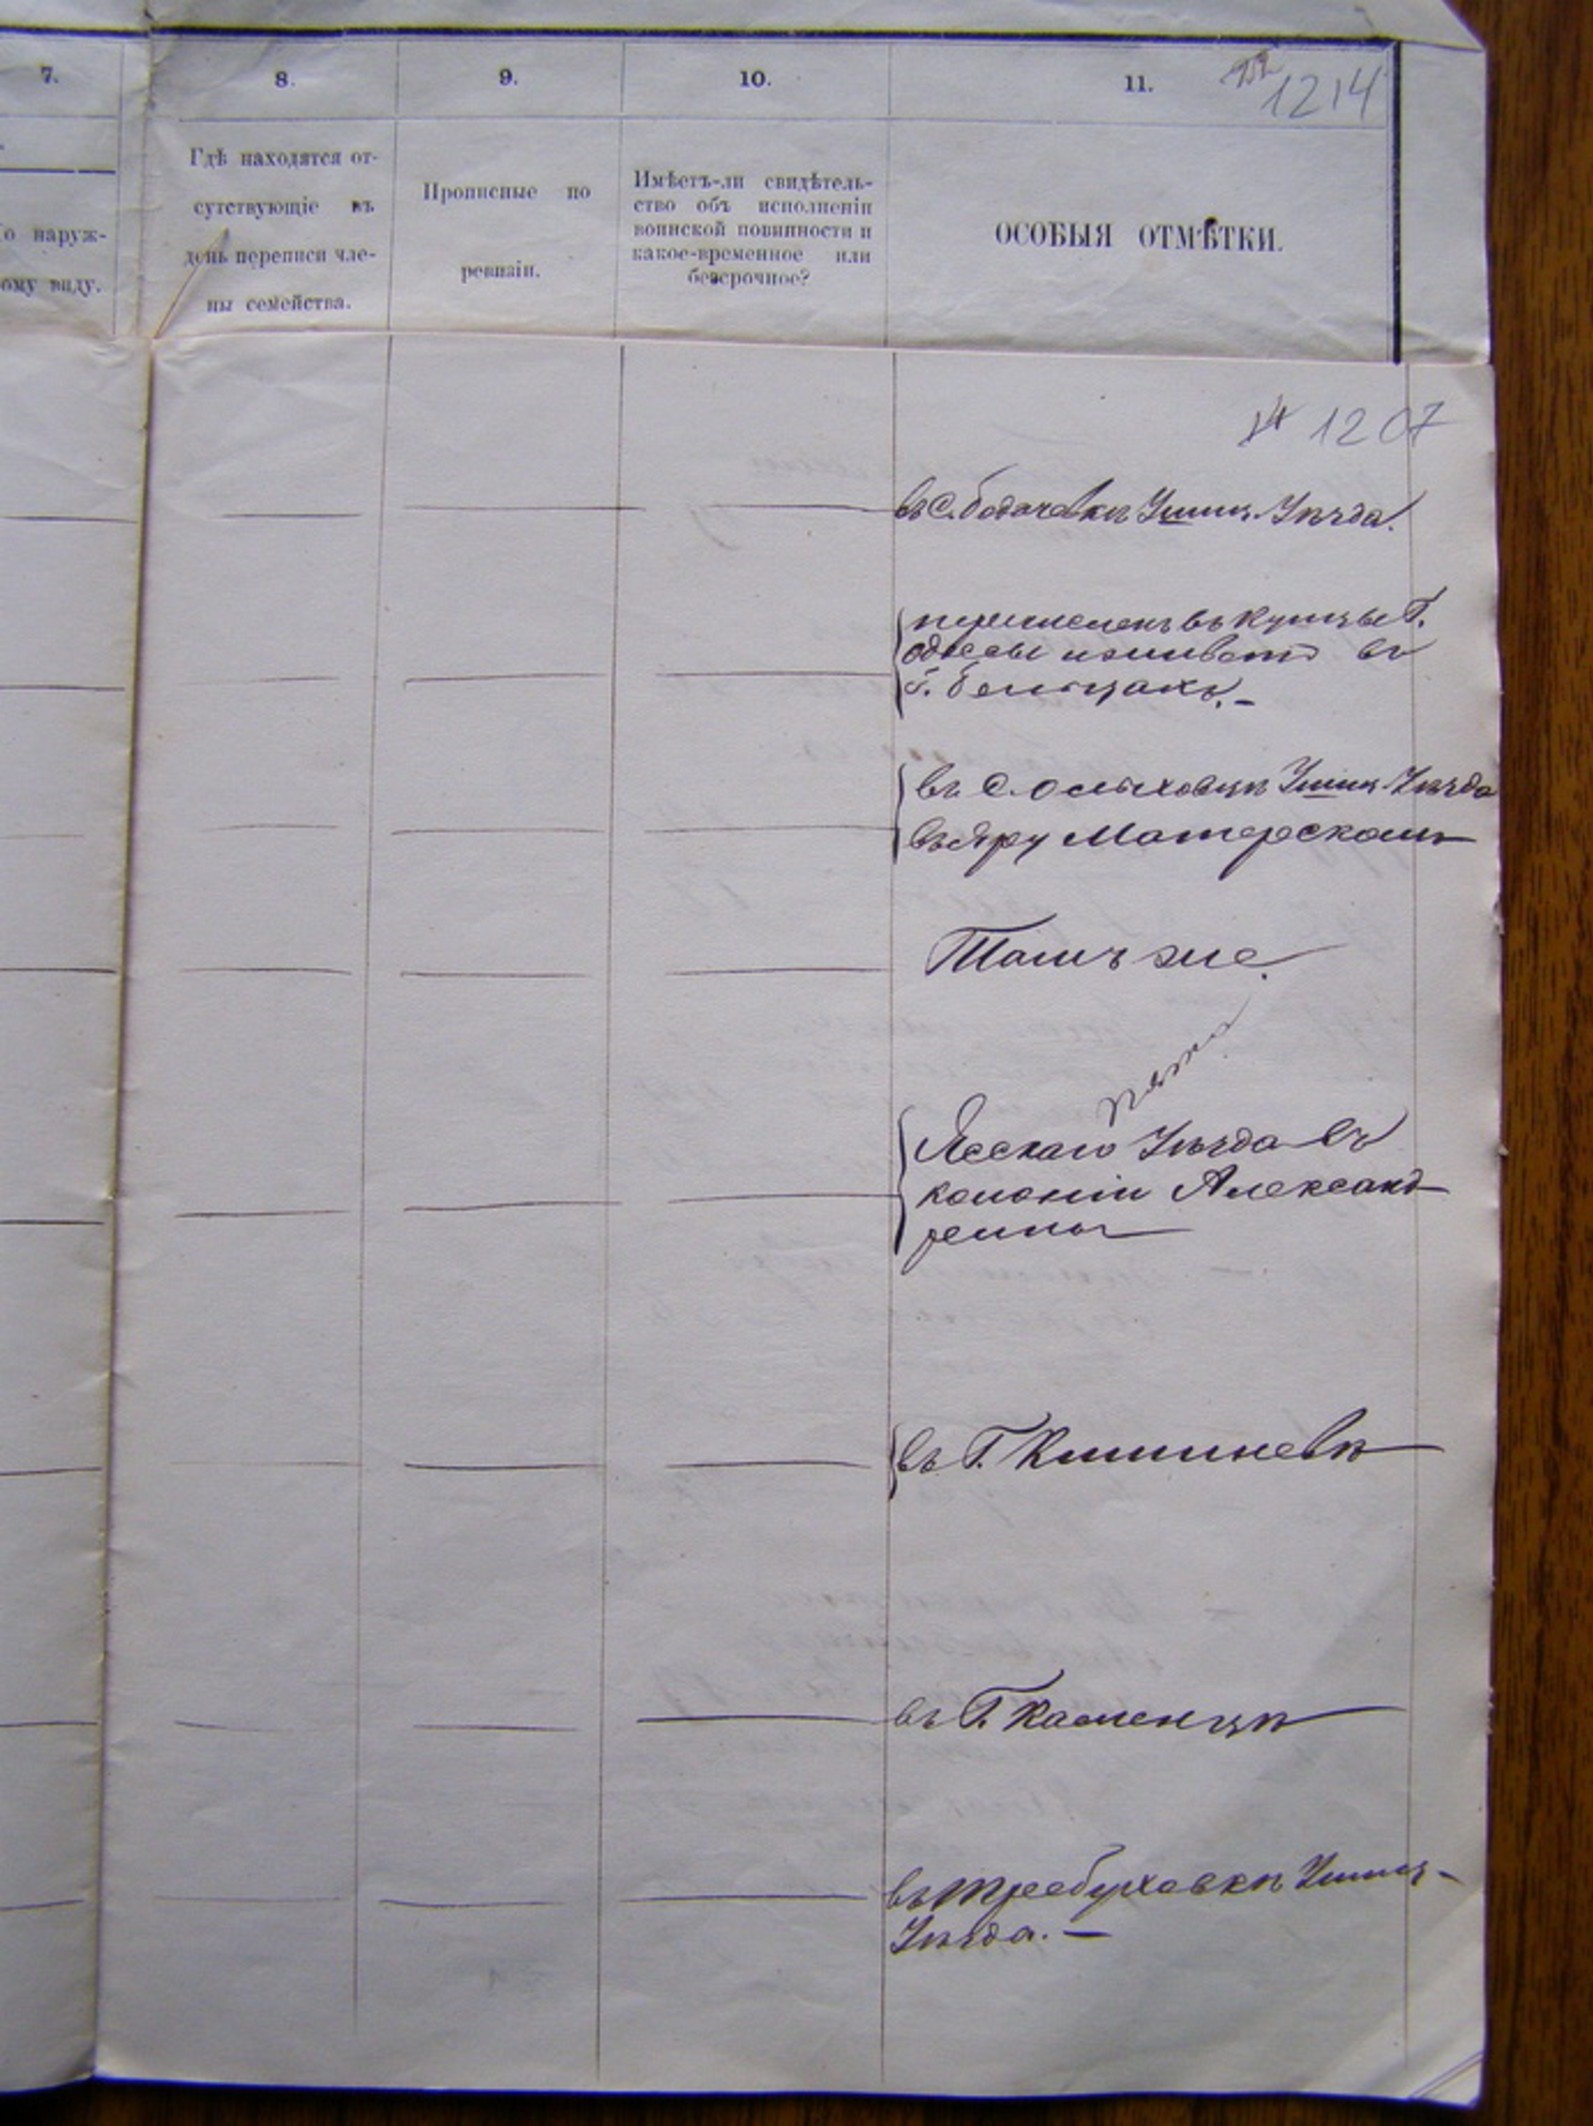 7.
8.
9.
10.
11.
1214
о наруж-
ому виду.
Гдѣ находятся от-
сутствующіе въ
день переписи чле-
ны семейства.
Прописные по
ревизіи.
Имѣетъ-ли свидѣтель-
ство объ исполненіи
воинской повинности и
какое-временное или
безсрочное?
ОСОБЫЯ ОТМѢТКИ.
1207
въ С. Ушиц. Уѣзда.
перечисленъ въ купцы Г.
Одессы и живетъ въ
г. Бельцахъ. –
въ С. Ушиц. Уѣзда
въ Яру Матерскомъ
Тамъ же.
Ясскаго Уѣзда въ
колоніи Александ
рени
въ Г. Кишиневѣ
въ Г. Каменцѣ
въ Требуховкѣ Ушиц-
Уѣзда. –